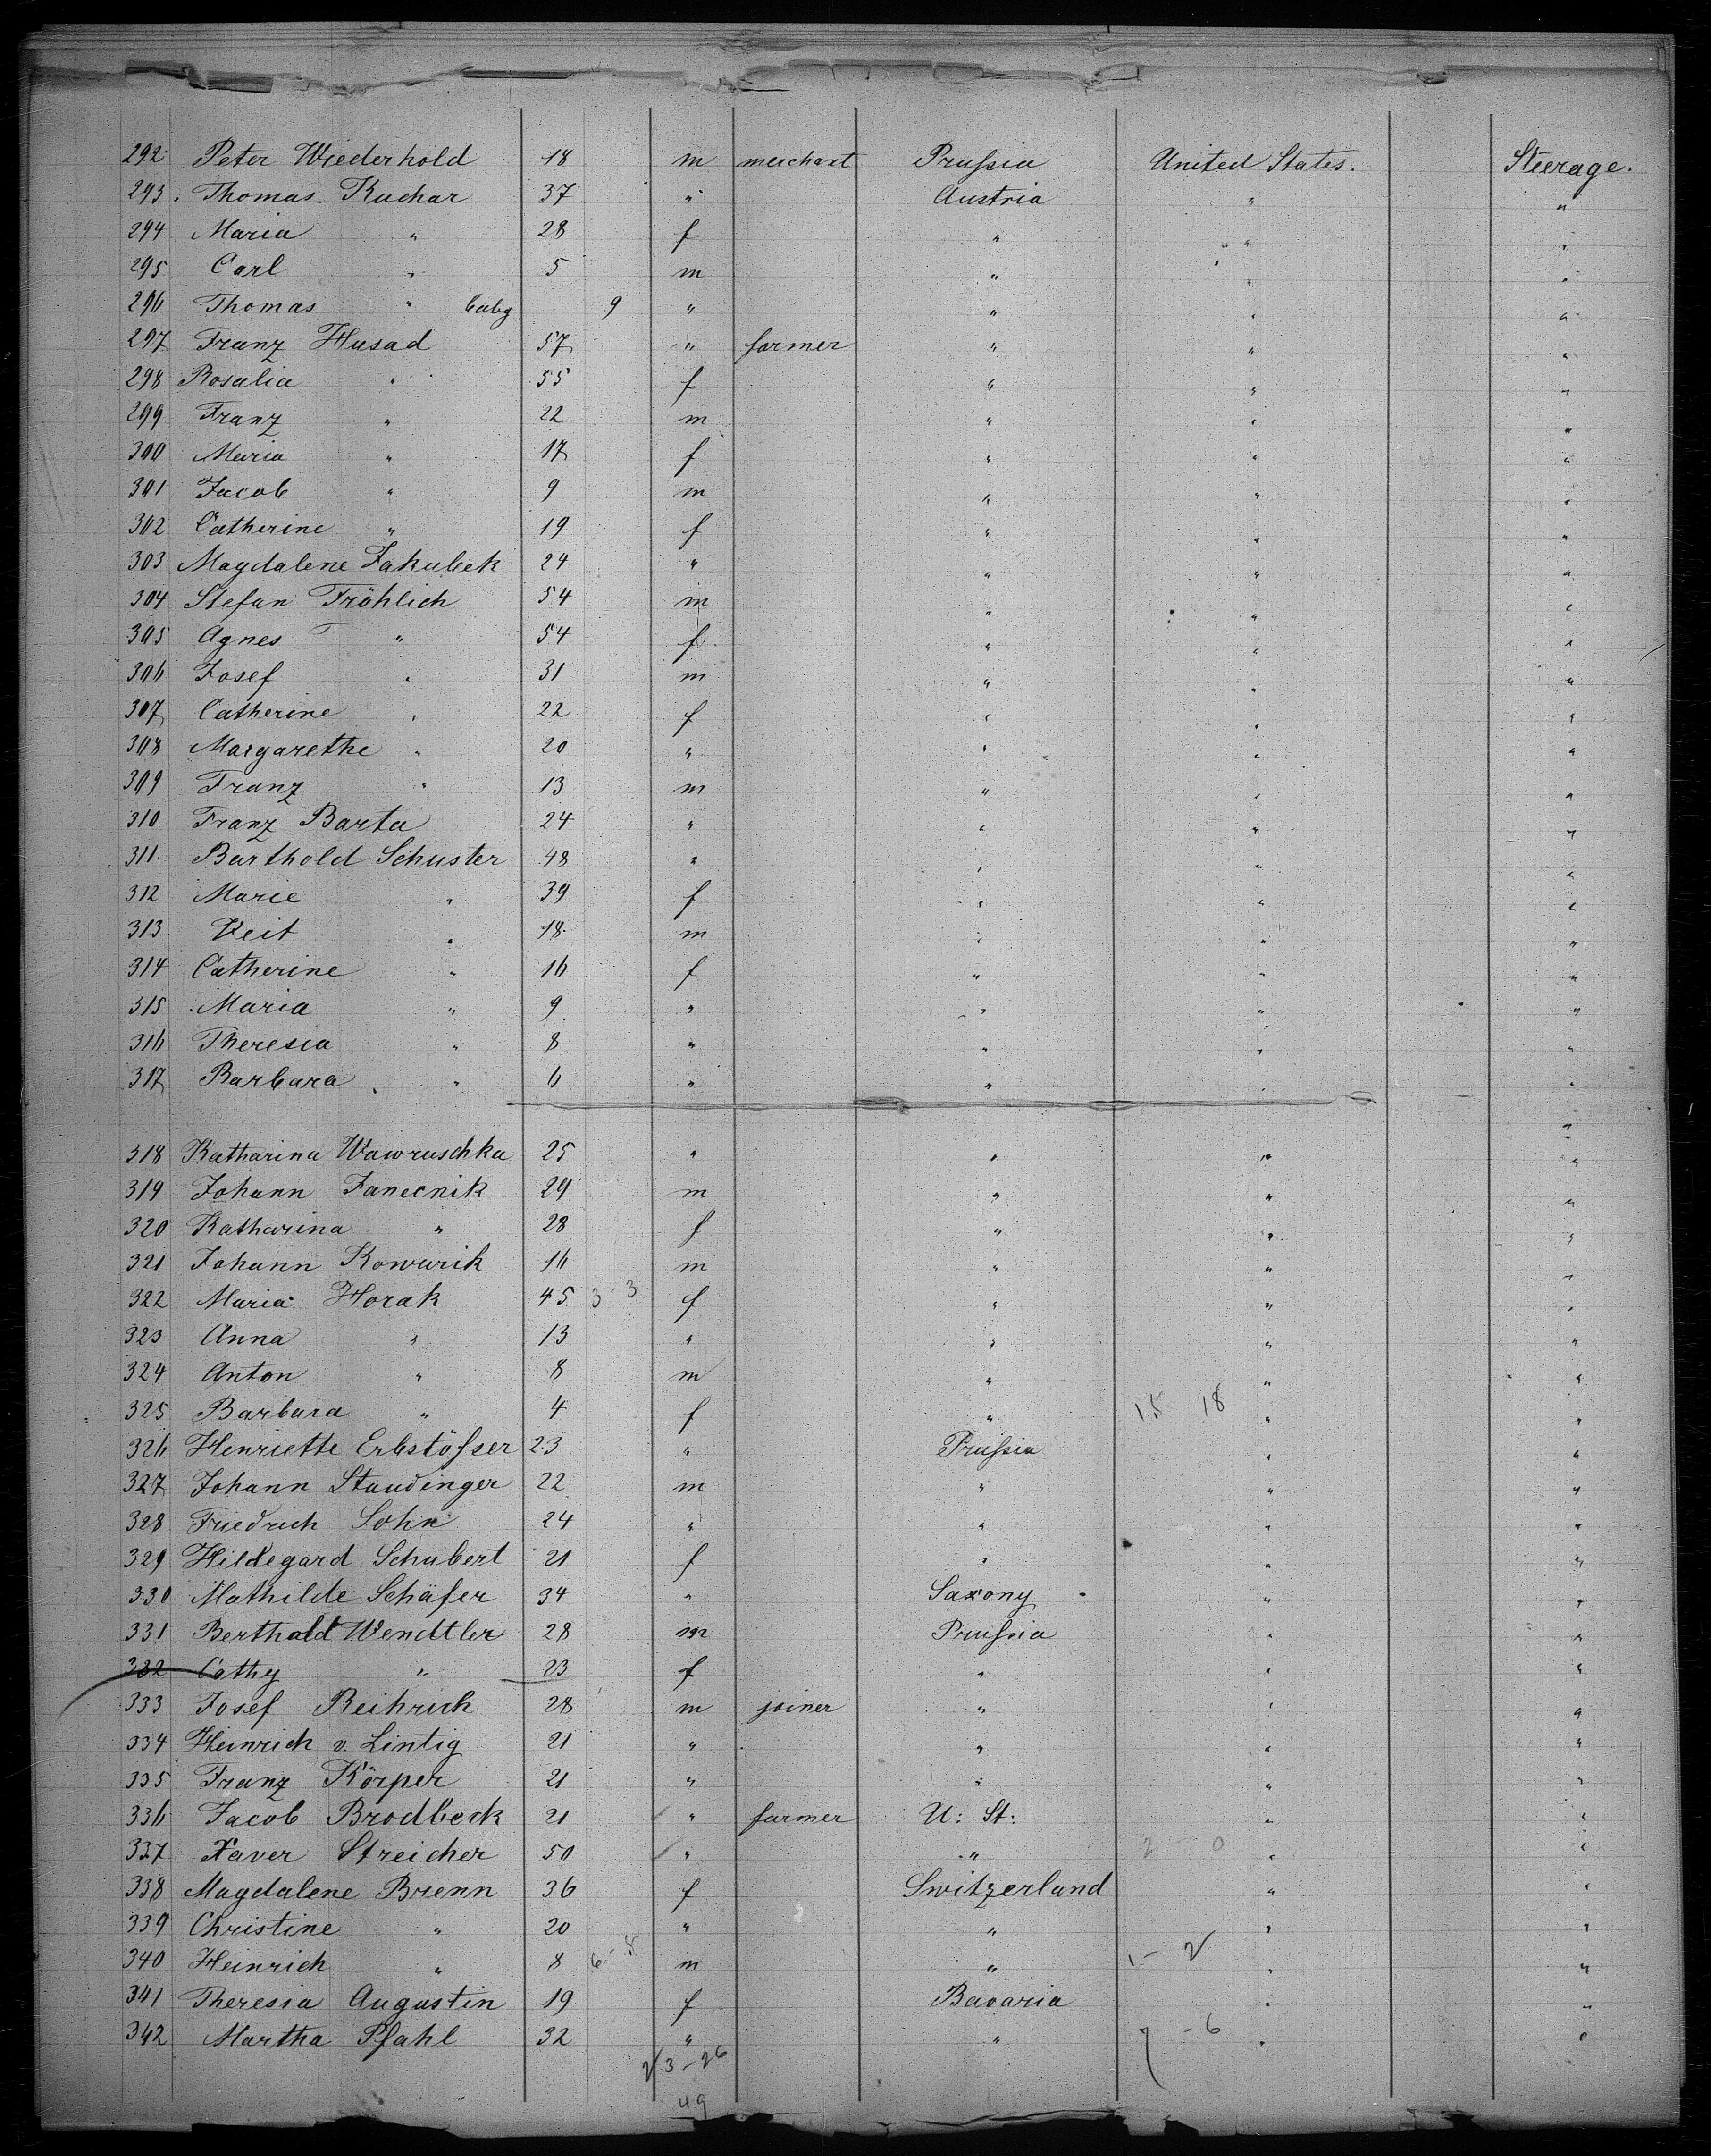 292 Peter Wiederhold 18 m merchant Prussia United States. Steerage.
293 Thomas Kuchar 37 " Austria " "
294 Maria " 28 f " " "
295 Carl " 5 m " " "
296 Thomas " baby 9 " " " "
297 Franz Husad 57 " farmer " " "
298 Rosalia " 55 f " " "
299 Franz " 22 m " " "
300 Maria " 17 f " " "
301 Jacob " 9 m " " "
302 Catherine " 19 f " " "
303 Magdalene Jakubek 24 " " " "
304 Stefan Fröhlich 54 m " " "
305 Agnes " 54 f " " "
306 Josef " 31 m " " "
307 Catherine " 22 f " " "
308 Margarethe " 20 " " " "
309 Franz " 13 m " " "
310 Franz Barta 24 " " " "
311 Barthold Schuster 48 " " " "
312 Marie " 39 f " " "
313 Veit " 18 m " " "
314 Catherine " 16 f " " "
315 Maria " 9 " " " "
316 Theresia " 8 " " " "
317 Barbara " 6 " " " "
318 Katharina Wawruschka 25 " " " "
319 Johann Janecnik 29 m " " "
320 Katharina " 28 f " " "
321 Johann Kowarik 16 m " " "
322 Maria Horak 45 3-3 f " " "
323 Anna " 13 " " " "
324 Anton " 8 m " " "
325 Barbara " 4 f " 15 18 " "
326 Henriette Erbstösser 23 " Prussia " "
327 Johann Staudinger 22 m " " "
328 Friedrich Sohn 24 " " " "
329 Hildegard Schubert 21 f " " "
330 Mathilde Schäfer 34 " Saxony " "
331 Berthold Wendtler 28 m Prussia " "
332 Cathy " 23 f " " "
333 Josef Reihrich 28 m joiner " " "
334 Heinrich v. Lintig 21 " " " "
335 Franz Körper 21 " " " "
336 Jacob Brodbeck 21 " farmer U: St: " "
337 Xaver Streicher 50 " " 2 0 " "
338 Magdalene Brenn 36 f Switzerland " "
339 Christine " 20 " " " "
340 Heinrich " 8 6-8 m " 1-2 " "
341 Theresia Augustin 19 f Bavaria " "
342 Martha Pfahl 32 " " 7-6 " "
23-26
49